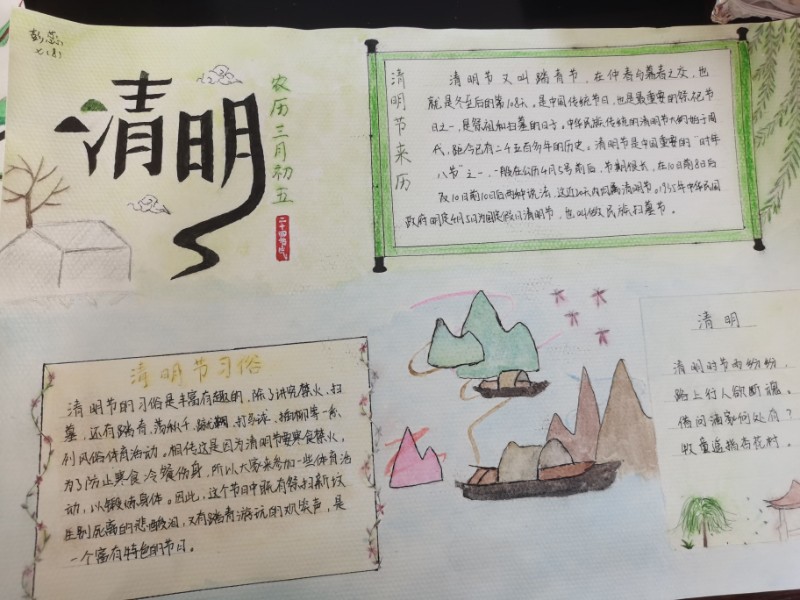 彭蕊
七(8)
清明
农历三月初五
二十四节气
清明节来历
清明节又叫踏青节,在仲春与暮春之交,也
就是冬至后的第108天。是中国传统节日,也是最重要的祭祀节
日之一,是祭祖和扫墓的日子。中华民族传统的清明节大约始于周
代,距今已有二千五百多年的历史。清明节是中国重要的"时年
八节"之一,一般在公历4月5号前后,节期很长,在10日前8日后
及10日前10日后两种说法,这近20天内均属清明节。1935年中华民国
政府明定4月5日为国定假日清明节,也叫做民族扫墓节。
清明节习俗
清明节的习俗是丰富有趣的,除了讲究禁火、扫
墓,还有踏青、荡秋千、蹴鞠、打马球、插柳等一系
列风俗体育活动。相传这是因为清明节要寒食禁火,
为了防止寒食冷餐伤身,所以大家来参加一些体育活
动,以锻炼身体。因此,这个节日中既有祭扫新坟
生别死离的悲酸泪,又有踏青游玩的欢笑声,是
一个富有特色的节日。
清明
清明时节雨纷纷,
路上行人欲断魂。
借问酒家何处有?
牧童遥指杏花村。